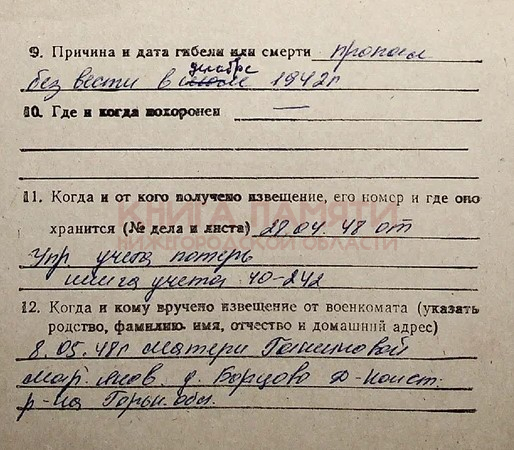 9. Причина и дата гибели или смерти пропал
декабре
без вести в июле 1942г
10. Где и когда похоронен —
11. Когда и от кого получено извещение, его номер и где оно
КНИГА ПАМЯТИ
хранится (№ дела и листа) 28.04.48 от
НИЖЕГОРОДСКОЙ ОБЛАСТИ
Упр учета потерь
книга учета 40-242
12. Когда и кому вручено извещение от военкомата (указать
родство, фамилию, имя, отчество и домашний адрес)
8.05.48г матери
Мар. Яков. д. Борцово Д-Конст.
р-на Горьк. обл.